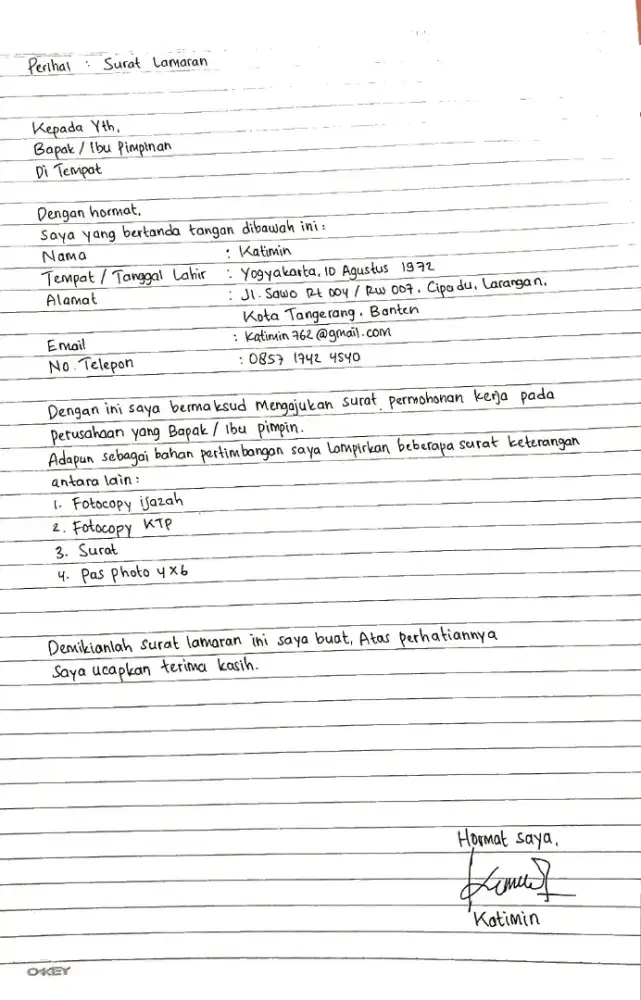 Perihal : Surat Lamaran
Kepada Yth,
Bapak / Ibu Pimpinan
Di Tempat
Dengan hormat,
Saya yang bertanda tangan dibawah ini :
Nama : Katimin
Tempat / Tanggal Lahir : Yogyakarta, 10 Agustus 1972
Alamat : Jl. Sawo Rt 004 / Rw 007, Cipadu, Larangan,
Kota Tangerang, Banten
Email : Katimin762@gmail.com
No. Telepon : 0857 1742 4540
Dengan ini saya bermaksud mengajukan surat permohonan kerja pada
perusahaan yang Bapak / Ibu pimpin.
Adapun sebagai bahan pertimbangan saya lampirkan beberapa surat keterangan
antara lain :
1. Fotocopy ijazah
2. Fotocopy KTP
3. Surat
4. Pas Photo 4x6
Demikianlah surat lamaran ini saya buat, Atas perhatiannya
Saya ucapkan terima kasih.
Hormat saya,
Katimin
OKEY